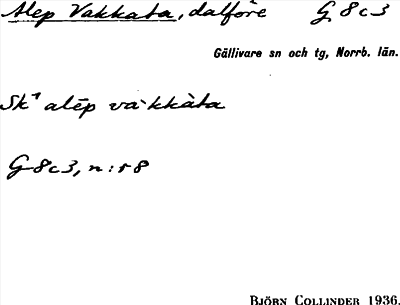 Alep Vakkata, dalföre G 8 c 3
Gällivare sn och tg, Norrb. län.
Sk¹ alēp va·kkàta
G 8 c 3, n:r 8
BJÖRN COLLINDER 1936.